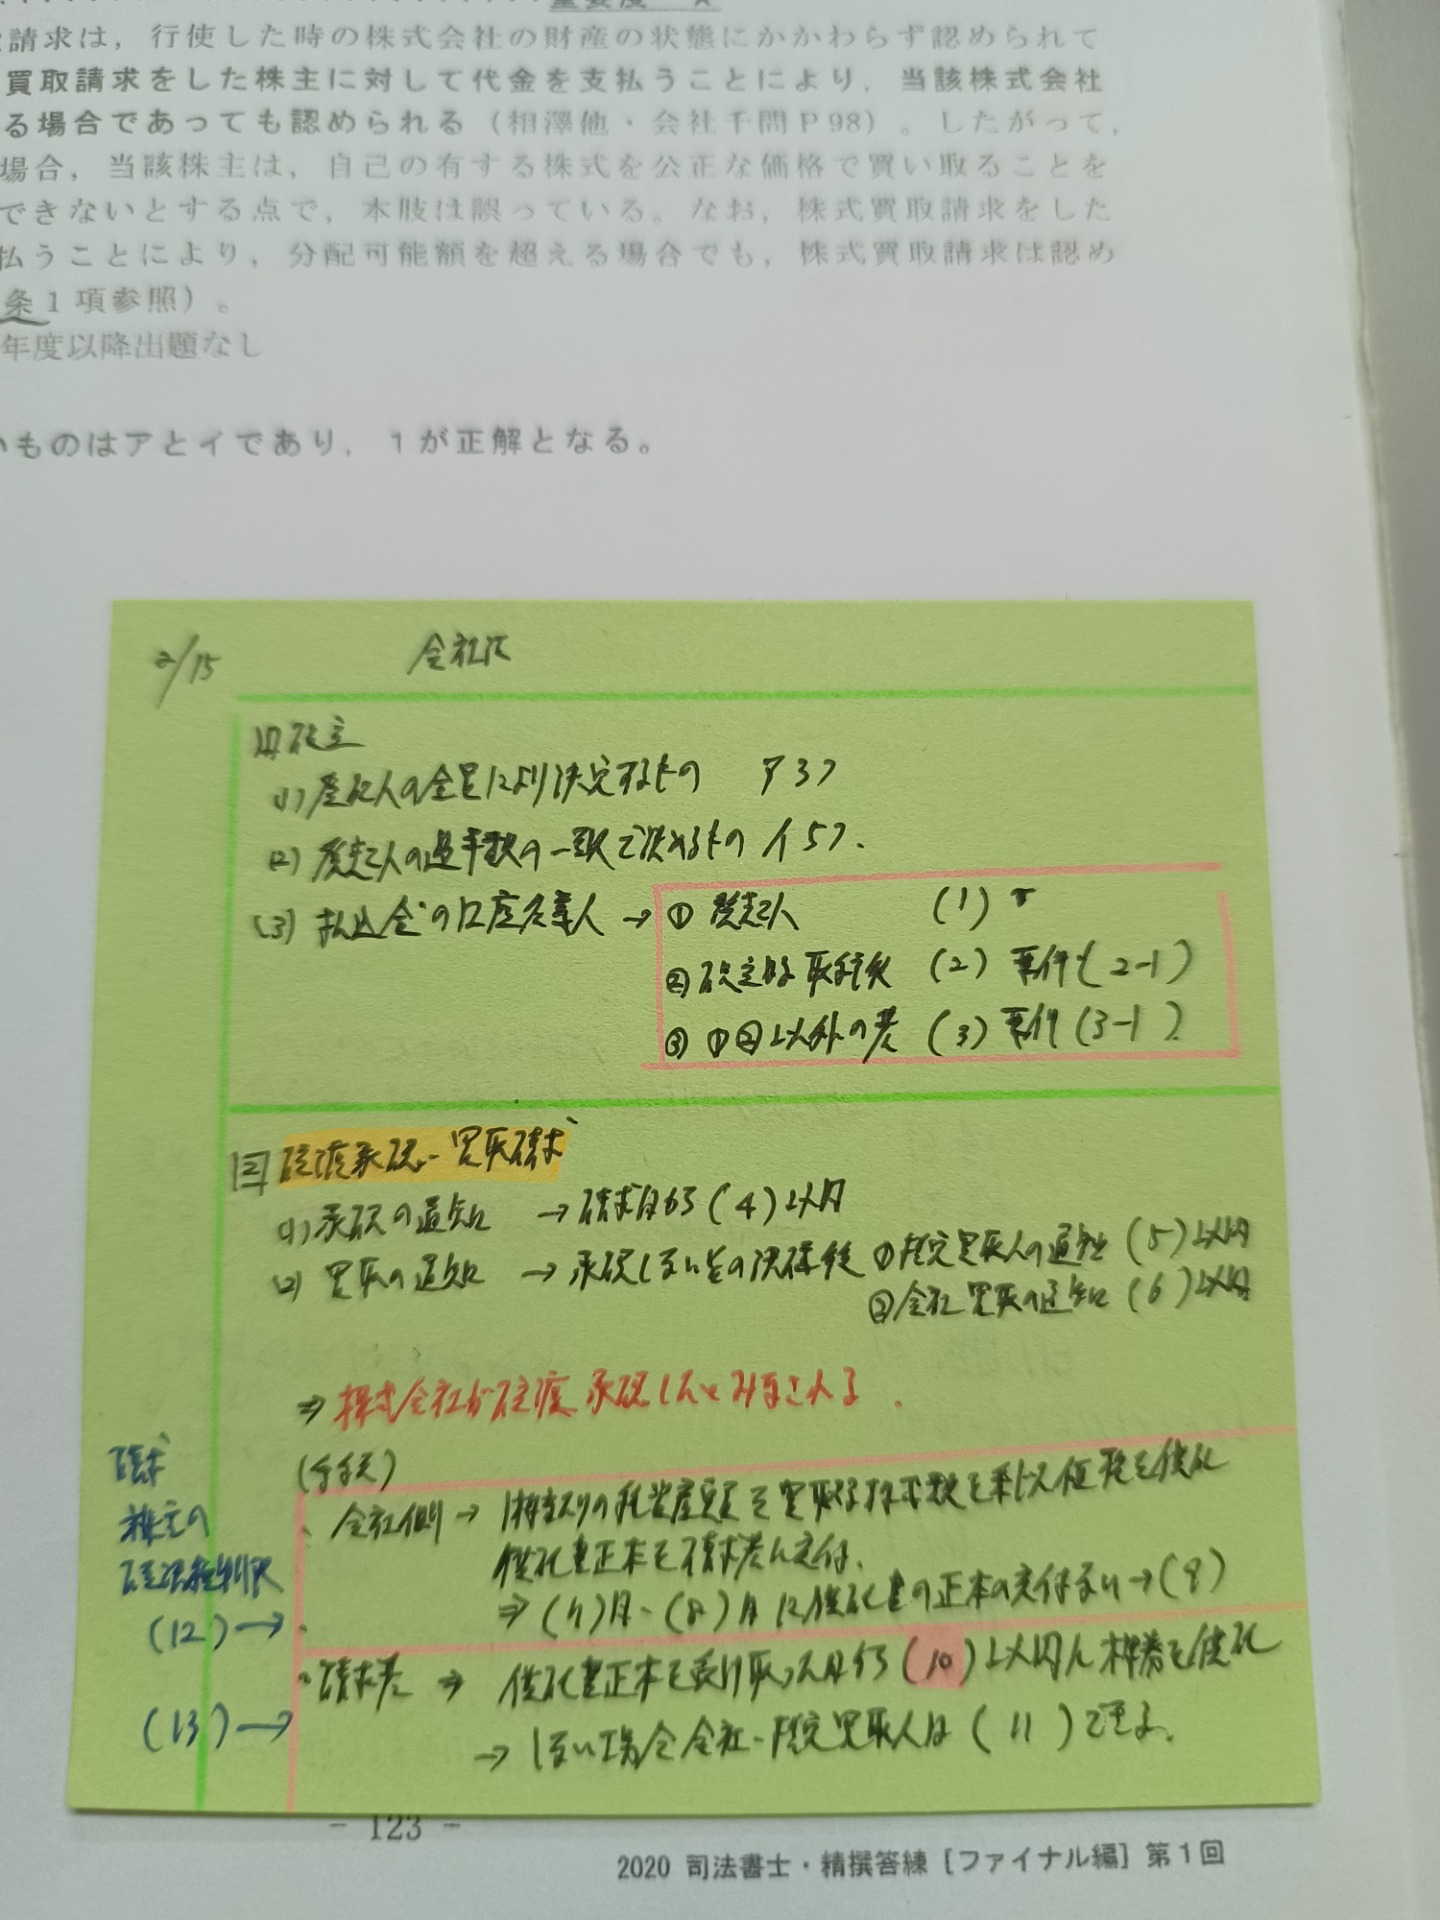 重要度 A
請求は，行使した時の株式会社の財産の状態にかかわらず認められて
買取請求をした株主に対して代金を支払うことにより，当該株式会社
る場合であっても認められる（相澤他・会社千問Ｐ98）。したがって，
場合，当該株主は，自己の有する株式を公正な価格で買い取ることを
できないとする点で，本肢は誤っている。なお，株式買取請求をした
払うことにより，分配可能額を超える場合でも，株式買取請求は認め
条１項参照）。
年度以降出題なし
いものはアとイであり，１が正解となる。
2/15 会社法
設立
(1) 発起人の全員により決定するもの ア3つ
(2) 発起人の過半数の一致で決めるもの イ5つ.
(3) 払込金の口座名義人 → ① 発起人 (1)
② 設立時取締役 (2) 要件(2-1)
③ ①②以外の者 (3) 要件(3-1)
譲渡承認・買取請求
(1) 承認の通知 → 請求日から(4)以内
(2) 買取の通知 → 承認しない旨の決議後 ①指定買取人の通知(5)以内
②会社買取の通知(6)以内
⇒ 株式会社が譲渡承認したとみなされる.
(手続)
会社側 → 1株当たりの純資産額を買取る株式数を乗じた価額を供託
供託書正本を請求者に交付.
⇒ (7)日・(8)日に供託書の正本の交付ない→(9)
請求者 ⇒ 供託書正本を受け取った日から(10)以内に株券を供託
→ しない場合会社・指定買取人は(11)できる.
請求
株主の
(12) →
(13) →
- 123 -
2020 司法書士・精撰答練［ファイナル編］第１回